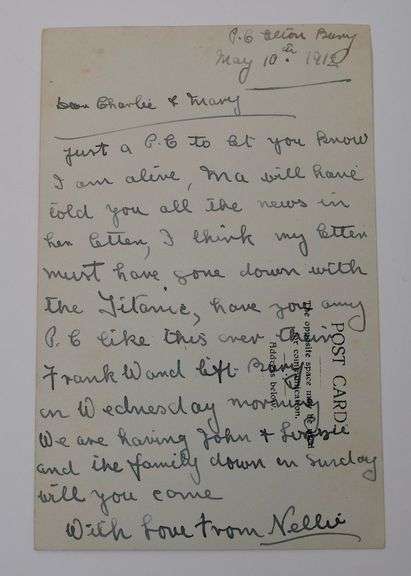 P.C Elton Bury
May 10th 1912
Dear Charlie & Mary
Just a P.C to let you know
I am alive, Ma will have
told you all the news in
her letter, I think my letter
must have gone down with
the Titanic, have you any
P.C like this over there
Frank W and left Bury
on Wednesday morning
We are having John & Lizzie
and the family down on Sunday
will you come
With love from Nellie
POST CARD
The opposite space may be used
for communication.
Address below